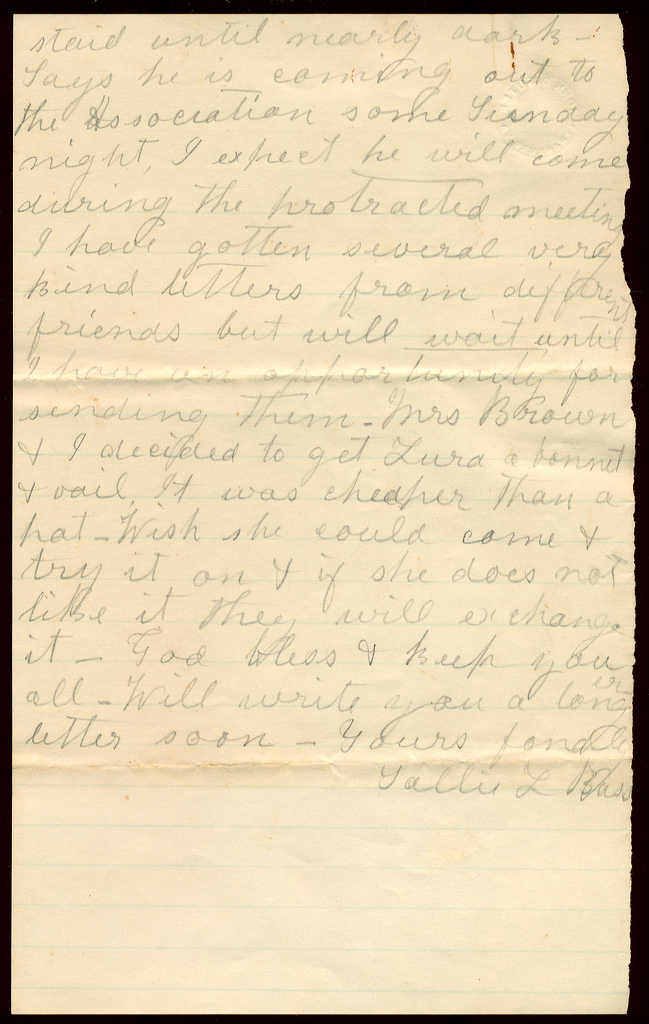 staid until nearly dark –
Says he is coming out to
the Association some Sunday
night, I expect he will come
during the protracted meeting
I have gotten several very
kind letters from different
friends but will wait until
I have an opportunity for
sending them – Mrs Brown
& I decided to get Lura a bonnet
& vail, It was cheaper than a
hat – Wish she could come &
try it on & if she does not
like it they will exchange
it – God bless & keep you
all – Will write you a longer
letter soon – Yours fondly
Sallie L Bass